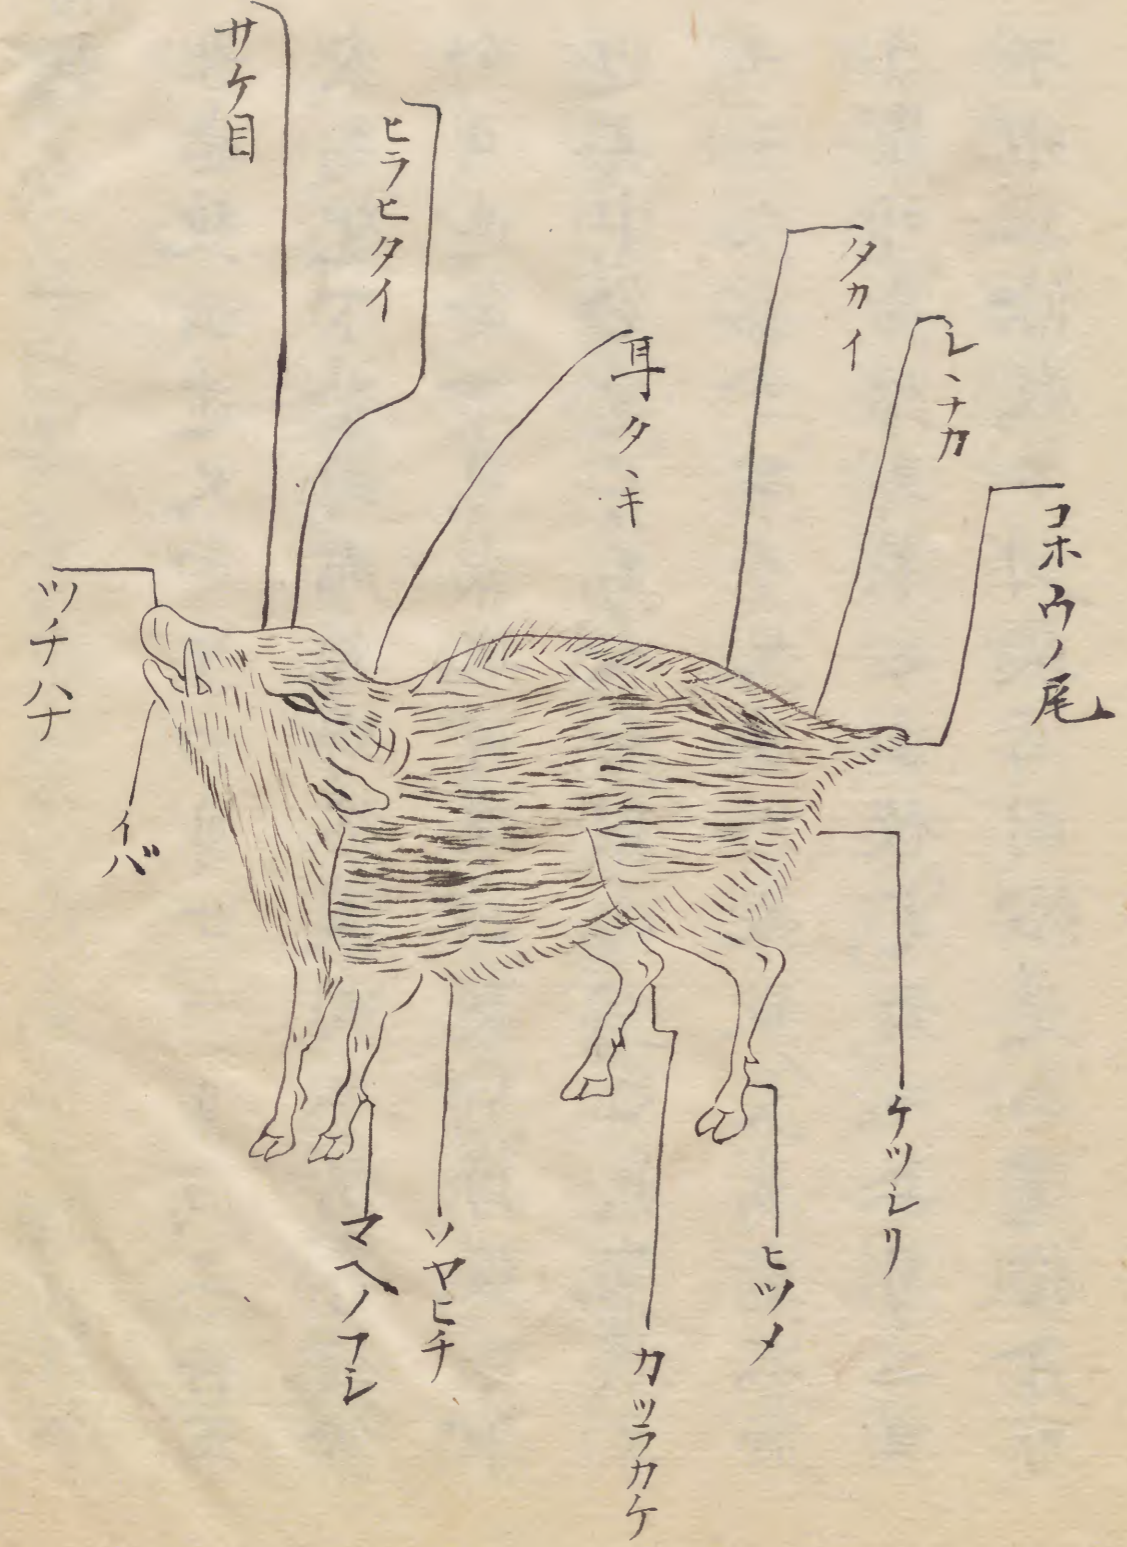 コホウノ尾
シヽナカ
タカイ
耳タヽキ
ヒラヒタイ
サケ目
ツチハナ
イバ
ケツシリ
ヒツメ
カツラカケ
ソヤヒチ
マヘノフシ